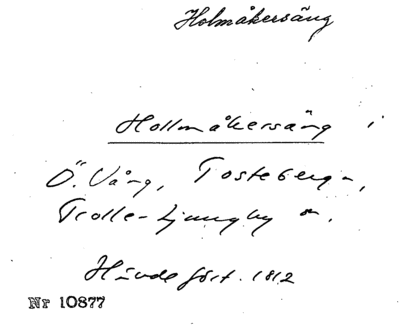 Holmåkersäng
Hollmåkersäng i
Ö. Vång, Tosteberga,
Trolle-Ljungby sn.
Hävdefört. 1812
Nr 10877